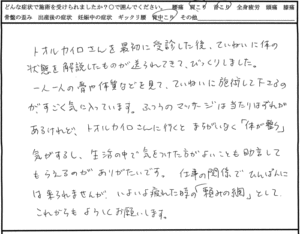 どんな症状で施術を受けられましたか？○で囲んでください。 腰痛 肩こり 首こり 全身疲労 頭痛 膝痛
骨盤の歪み 出産後の症状 妊娠中の症状 ギックリ腰 背中こり その他
トオルカイロさんを最初に受診した後、ていねいに体の
状態を解説したものが送られてきて、びっくりしました。
一人一人の骨や体質などを見て、ていねいに施術して下さるの
が、すごく気に入っています。ふつうのマッサージは当たりはずれが
あるけれど、トオルカイロさんに行くと まちがいなく「体が整う」
気がするし、生活の中で気をつけた方がよいことも助言して
もらえるのが ありがたいです。 仕事の関係で ひんぱんに
は来られませんが、いよいよ疲れた時の「頼みの綱」として、
これからも よろしくお願いします。